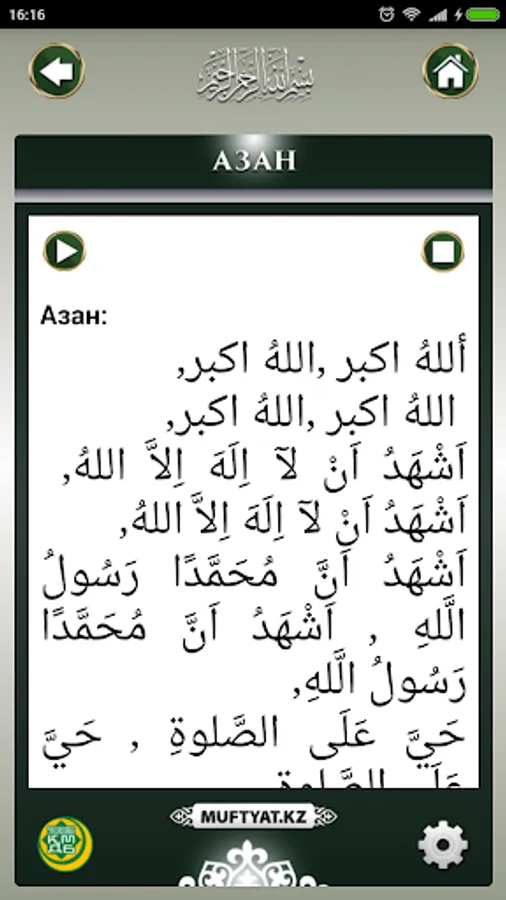 16:16
بسم الله الرحمن الرحيم
АЗАН
Азан:
أللهُ اكبر ,اللهُ اكبر,
اللهُ اكبر ,اللهُ اكبر,
اَشْهَدُ اَنْ لآ اِلَهَ اِلاَّ اللهُ,
اَشْهَدُ اَنْ لآ اِلَهَ اِلاَّ اللهُ,
اَشْهَدُ اَنَّ مُحَمَّدًا رَسُولُ
الَّلهِ , اَشْهَدُ اَنَّ مُحَمَّدًا
رَسُولُ الَّلهِ,
حَيَّ عَلَى الصَّلوةِ , حَيَّ
عَلَى الصَّلوةِ
MUFTYAT.KZ
ҚМДБ